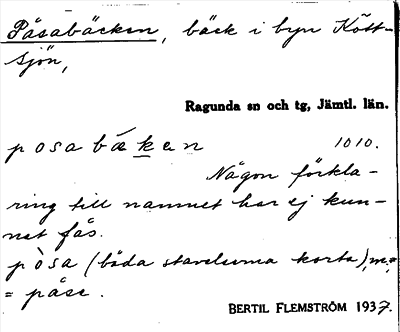 Påsabäcken, bäck i byn Kött-
sjön,
Ragunda sn och tg, Jämtl. län.
posabæken 1010.
Någon förkla-
ring till namnet har ej kun-
nat fås.
pòsa (båda stavelserna korta), m.,
= påse.
BERTIL FLEMSTRÖM 1937.